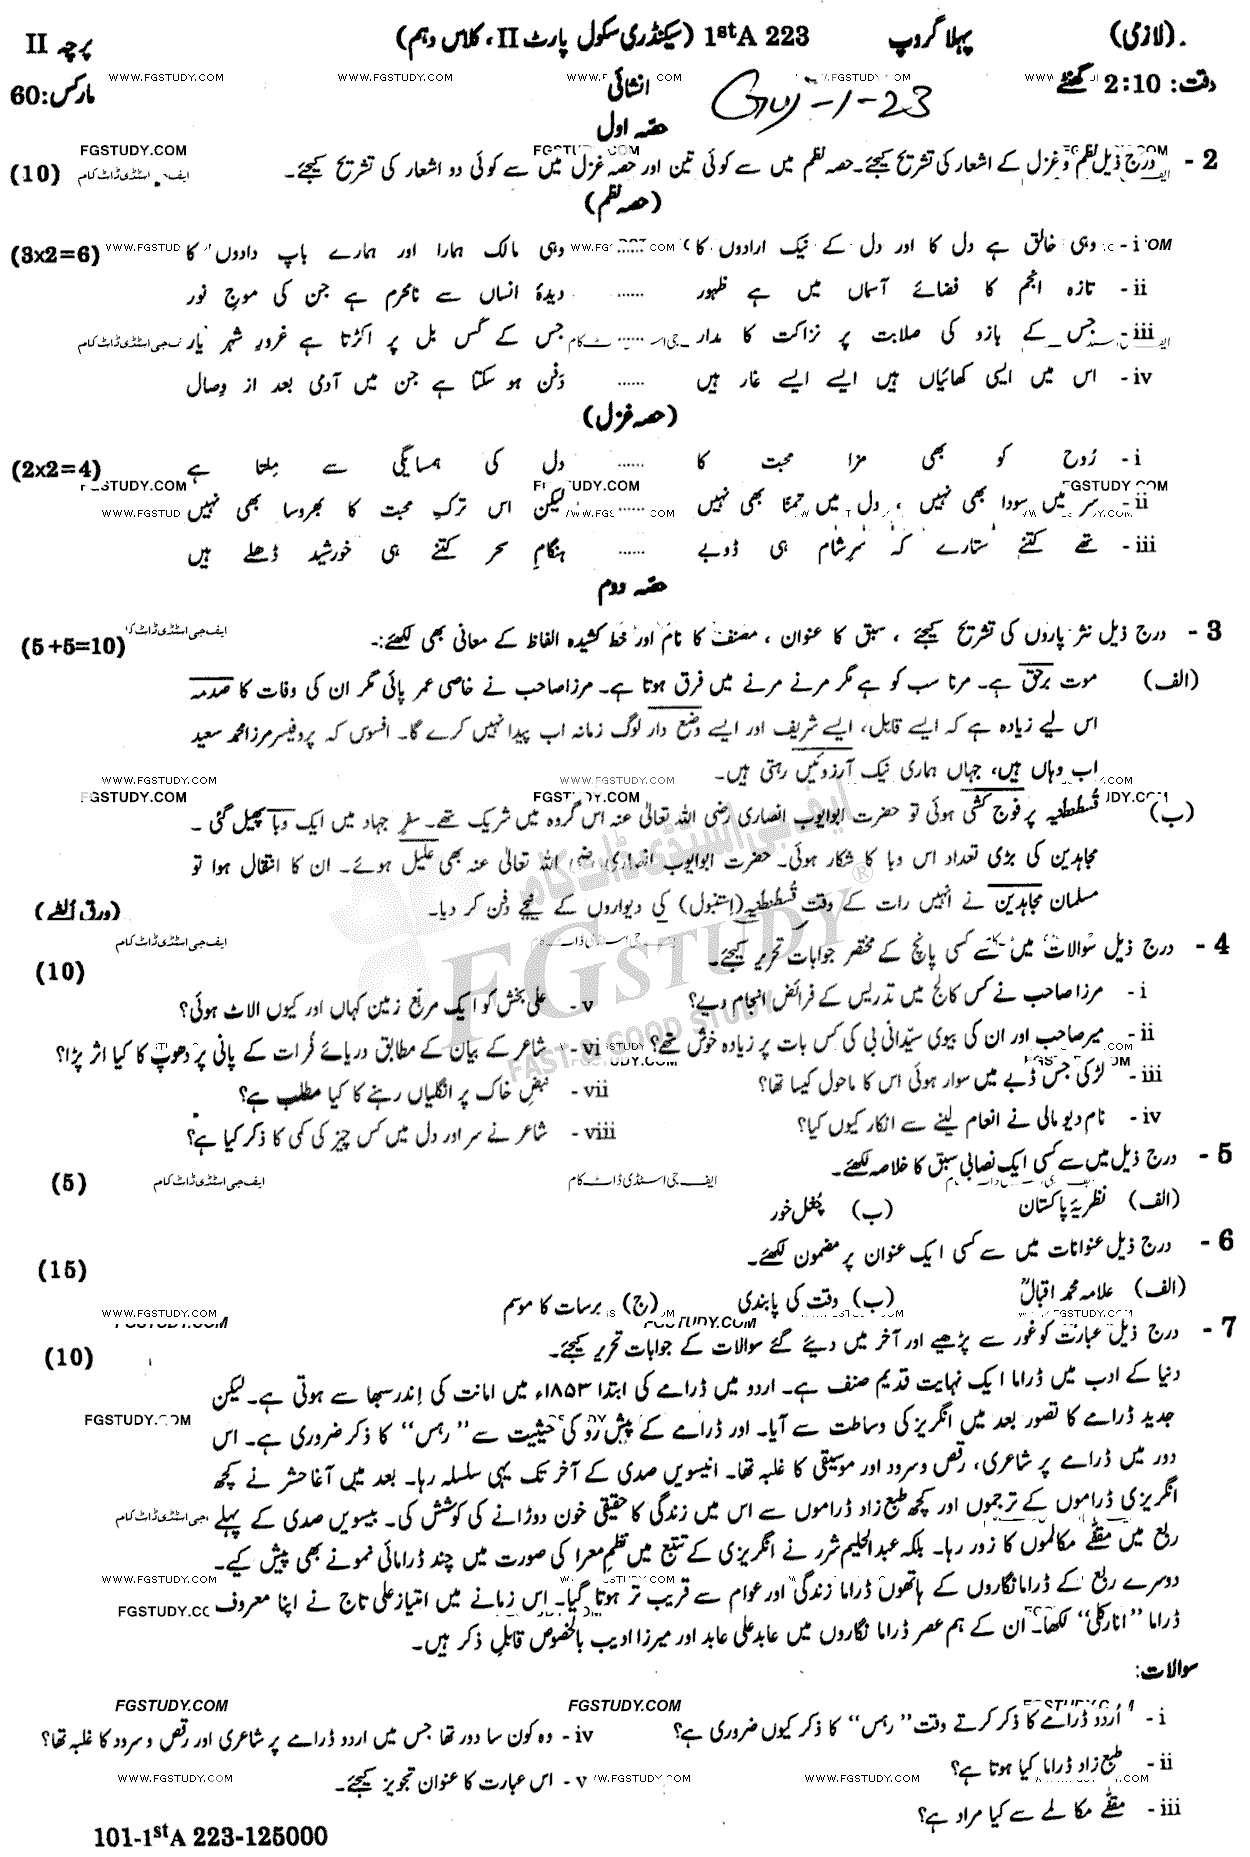 (لازمی) پہلا گروپ 1stA 223 (سیکنڈری سکول پارٹ II، کلاس دہم) پرچہ II
وقت: 2:10 گھنٹے Guj-1-23 انشائی مارکس:60
حصہ اول
2 - درج ذیل نظم و غزل کے اشعار کی تشریح کیجئے۔ حصہ نظم میں سے کوئی تین اور حصہ غزل میں سے کوئی دو اشعار کی تشریح کیجئے۔ (10)
(حصہ نظم)
i - وہی خالق ہے دل کا اور دل کے نیک ارادوں کا ...... وہی مالک ہمارا اور ہمارے باپ دادوں کا (3x2=6)
ii - تازہ انجم کا فضائے آسماں میں ہے ظہور ...... دیدۂ انساں سے نامحرم ہے جن کی موجِ نور
iii - جس کے بازو کی صلابت پر نزاکت کا مدار ...... جس کے کس بل پر اکڑتا ہے غرورِ شہر یار
iv - اس میں ایسی کھائیاں ہیں ایسے ایسے غار ہیں ...... دفن ہو سکتا ہے جن میں آدمی بعد از وصال
(حصہ غزل)
i - رُوح کو بھی مزا محبت کا ...... دل کی ہمسائیگی سے مِلتا ہے (2x2=4)
ii - سر میں سودا بھی نہیں ، دل میں تمنّا بھی نہیں ...... لیکن اس ترکِ محبت کا بھروسا بھی نہیں
iii - تھے کتنے ستارے کہ سرِشام ہی ڈوبے ...... ہنگامِ سحر کتنے ہی خورشید ڈھلے ہیں
حصہ دوم
3 - درج ذیل نثر پاروں کی تشریح کیجئے ، سبق کا عنوان ، مصنف کا نام اور خط کشیدہ الفاظ کے معانی بھی لکھئے:- (5+5=10)
(الف) موت برحق ہے۔ مرنا سب کو ہے مگر مرنے مرنے میں فرق ہوتا ہے۔ مرزا صاحب نے خاصی عمر پائی مگر ان کی وفات کا صدمہ
اس لیے زیادہ ہے کہ ایسے قابل، ایسے شریف اور ایسے وضع دار لوگ زمانہ اب پیدا نہیں کرے گا۔ افسوس کہ پروفیسر مرزا محمد سعید
اب وہاں ہیں، جہاں ہماری نیک آرزوئیں رہتی ہیں۔
(ب) قُسطنطنیہ پر فوج کشی ہوئی تو حضرت ابوایوب انصاری رضی اللہ تعالیٰ عنہ اس گروہ میں شریک تھے۔ سفرِ جہاد میں ایک وبا پھیل گئی ۔
مجاہدین کی بڑی تعداد اس وبا کا شکار ہوئی۔ حضرت ابوایوب انصاری رضی اللہ تعالیٰ عنہ بھی علیل ہوئے۔ ان کا انتقال ہوا تو
مسلمان مجاہدین نے انہیں رات کے وقت قُسطنطنیہ (اِستنبول) کی دیواروں کے نیچے دفن کر دیا۔ (ورق اُلٹئے)
4 - درج ذیل سوالات میں سے کسی پانچ کے مختصر جوابات تحریر کیجئے۔ (10)
i - مرزا صاحب نے کس کالج میں تدریس کے فرائض انجام دیے؟ v - علی بخش کو ایک مربع زمین کہاں اور کیوں الاٹ ہوئی؟
ii - میر صاحب اور ان کی بیوی سیّدانی بی کی کس بات پر زیادہ خوش تھے؟ vi - شاعر کے بیان کے مطابق دریائے فُرات کے پانی پر دھوپ کا کیا اثر پڑا؟
iii - لڑکی جس ڈبے میں سوار ہوئی اس کا ماحول کیسا تھا؟ vii - نبضِ خاک پر انگلیاں رہنے کا کیا مطلب ہے؟
iv - نام دیو مالی نے انعام لینے سے انکار کیوں کیا؟ viii - شاعر نے سر اور دل میں کس چیز کی کمی کا ذکر کیا ہے؟
5 - درج ذیل میں سے کسی ایک نصابی سبق کا خلاصہ لکھئے۔ (5)
(الف) نظریۂ پاکستان (ب) چُغل خور
6 - درج ذیل عنوانات میں سے کسی ایک عنوان پر مضمون لکھئے۔ (15)
(الف) علامہ محمد اقبالؒ (ب) وقت کی پابندی (ج) برسات کا موسم
7 - درج ذیل عبارت کو غور سے پڑھیے اور آخر میں دیئے گئے سوالات کے جوابات تحریر کیجئے۔ (10)
دنیا کے ادب میں ڈراما ایک نہایت قدیم صنف ہے۔ اردو میں ڈرامے کی ابتدا ۱۸۵۳ء میں امانت کی اِندر سبھا سے ہوتی ہے۔ لیکن
جدید ڈرامے کا تصور بعد میں انگریز کی وساطت سے آیا۔ اور ڈرامے کے پیش رَو کی حیثیت سے "رہس" کا ذکر ضروری ہے۔ اس
دور میں ڈرامے پر شاعری، رقص و سرود اور موسیقی کا غلبہ تھا۔ انیسویں صدی کے آخر تک یہی سلسلہ رہا۔ بعد میں آغا حشر نے کچھ
انگریزی ڈراموں کے ترجموں اور کچھ طبع زاد ڈراموں سے اس میں زندگی کا حقیقی خون دوڑانے کی کوشش کی۔ بیسویں صدی کے پہلے
ربع میں مقفّٰی مکالموں کا زور رہا۔ بلکہ عبدالحلیم شرر نے انگریزی کے تتبع میں نظمِ معرا کی صورت میں چند ڈرامائی نمونے بھی پیش کیے۔
دوسرے ربع کے ڈراما نگاروں کے ہاتھوں ڈراما زندگی اور عوام سے قریب تر ہوتا گیا۔ اس زمانے میں امتیاز علی تاج نے اپنا معروف
ڈراما "انارکلی" لکھا۔ ان کے ہم عصر ڈراما نگاروں میں عابد علی عابد اور میرزا ادیب بالخصوص قابلِ ذکر ہیں۔
سوالات:
i - اُردو ڈرامے کا ذکر کرتے وقت "رہس" کا ذکر کیوں ضروری ہے؟ iv - وہ کون سا دور تھا جس میں اردو ڈرامے پر شاعری اور رقص و سرود کا غلبہ تھا؟
ii - طبع زاد ڈراما کیا ہوتا ہے؟ v - اس عبارت کا عنوان تجویز کیجئے۔
iii - مقفّٰی مکالمے سے کیا مراد ہے؟
101-1stA 223-125000